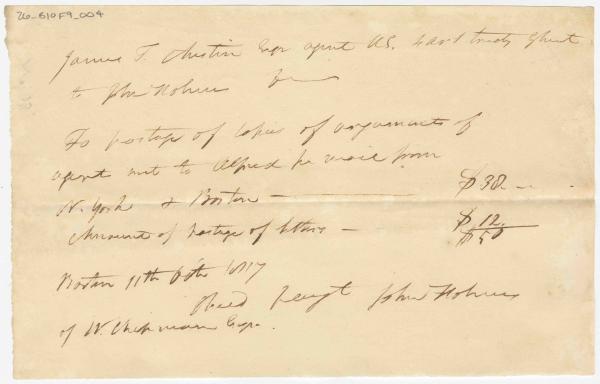 26-510F9-004
James T. Austin Esqr agent U.S. under treaty Ghent
to John Holmes Dr
To postage of copies of arguments of
agent sent to Alfred pr mail from
N. York & Boston — $38.—
Amount of postage of letters — $12.
$50
Boston 11th Octr 1817
Recd payt John Holmes
of N. Chapman Esqr.